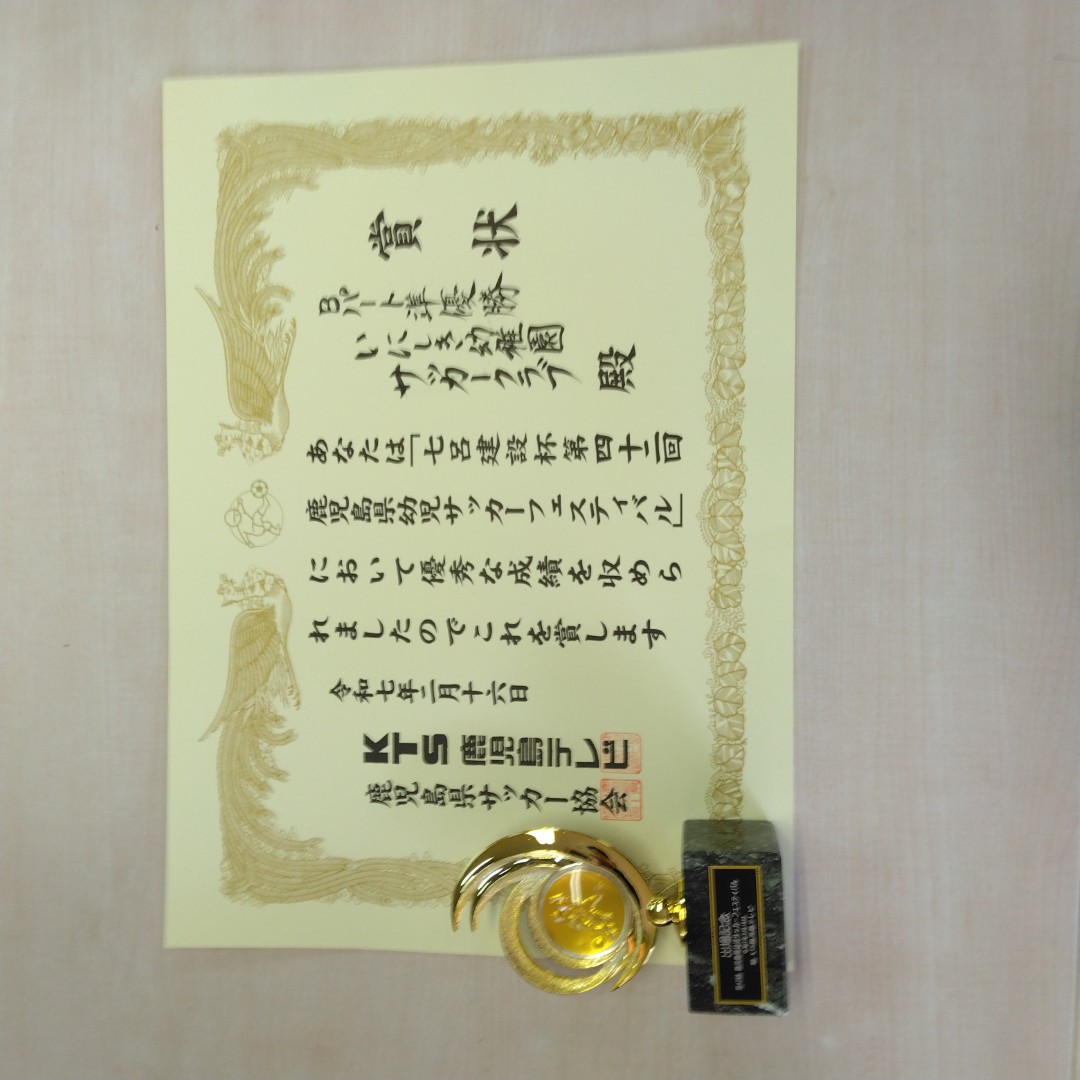 賞状
Bパート準優勝
いにしき幼稚園
サッカークラブ 殿
あなたは「七呂建設杯第四十二回
鹿児島県幼児サッカーフェスティバル」
において優秀な成績を収めら
れましたのでこれを賞します
令和七年二月十六日
KTS鹿児島テレビ
鹿児島県サッカー協会
出場記念